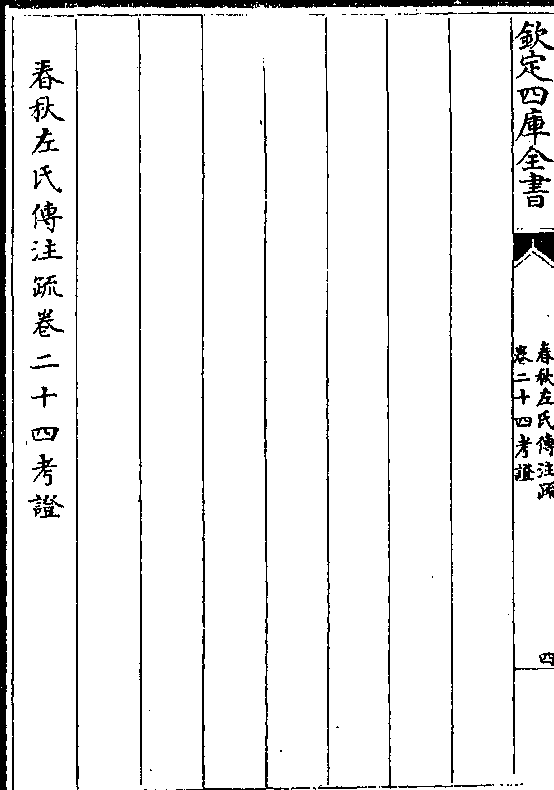 欽定四庫全書
春秋左氏傳注疏
卷二十四考證
四
春秋左氏傳注疏卷二十四考證